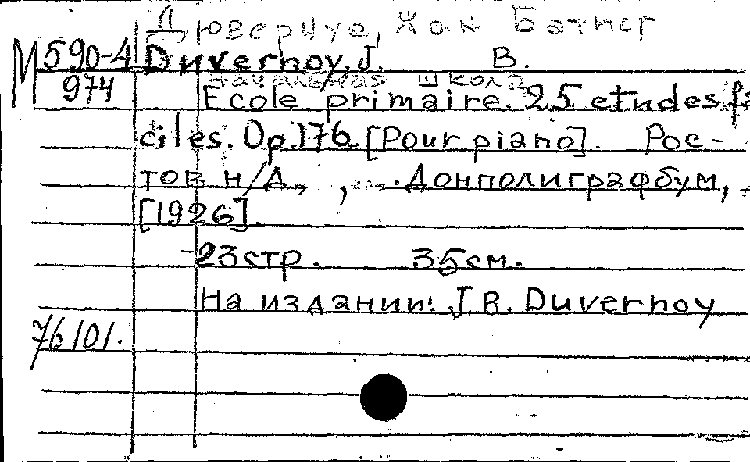 Дювернуа, Жан Батист
М 590-4 Duvernoy, J. B.
974
Начальная школа
Ecole primaire. 25 etudes fa
ciles. Op. 176. [Pour piano]. Рос-
тов н/Д, , Донполиграфбум,
[1926].
23 стр. 35 см.
На издании: J. B. Duvernoy
76101.